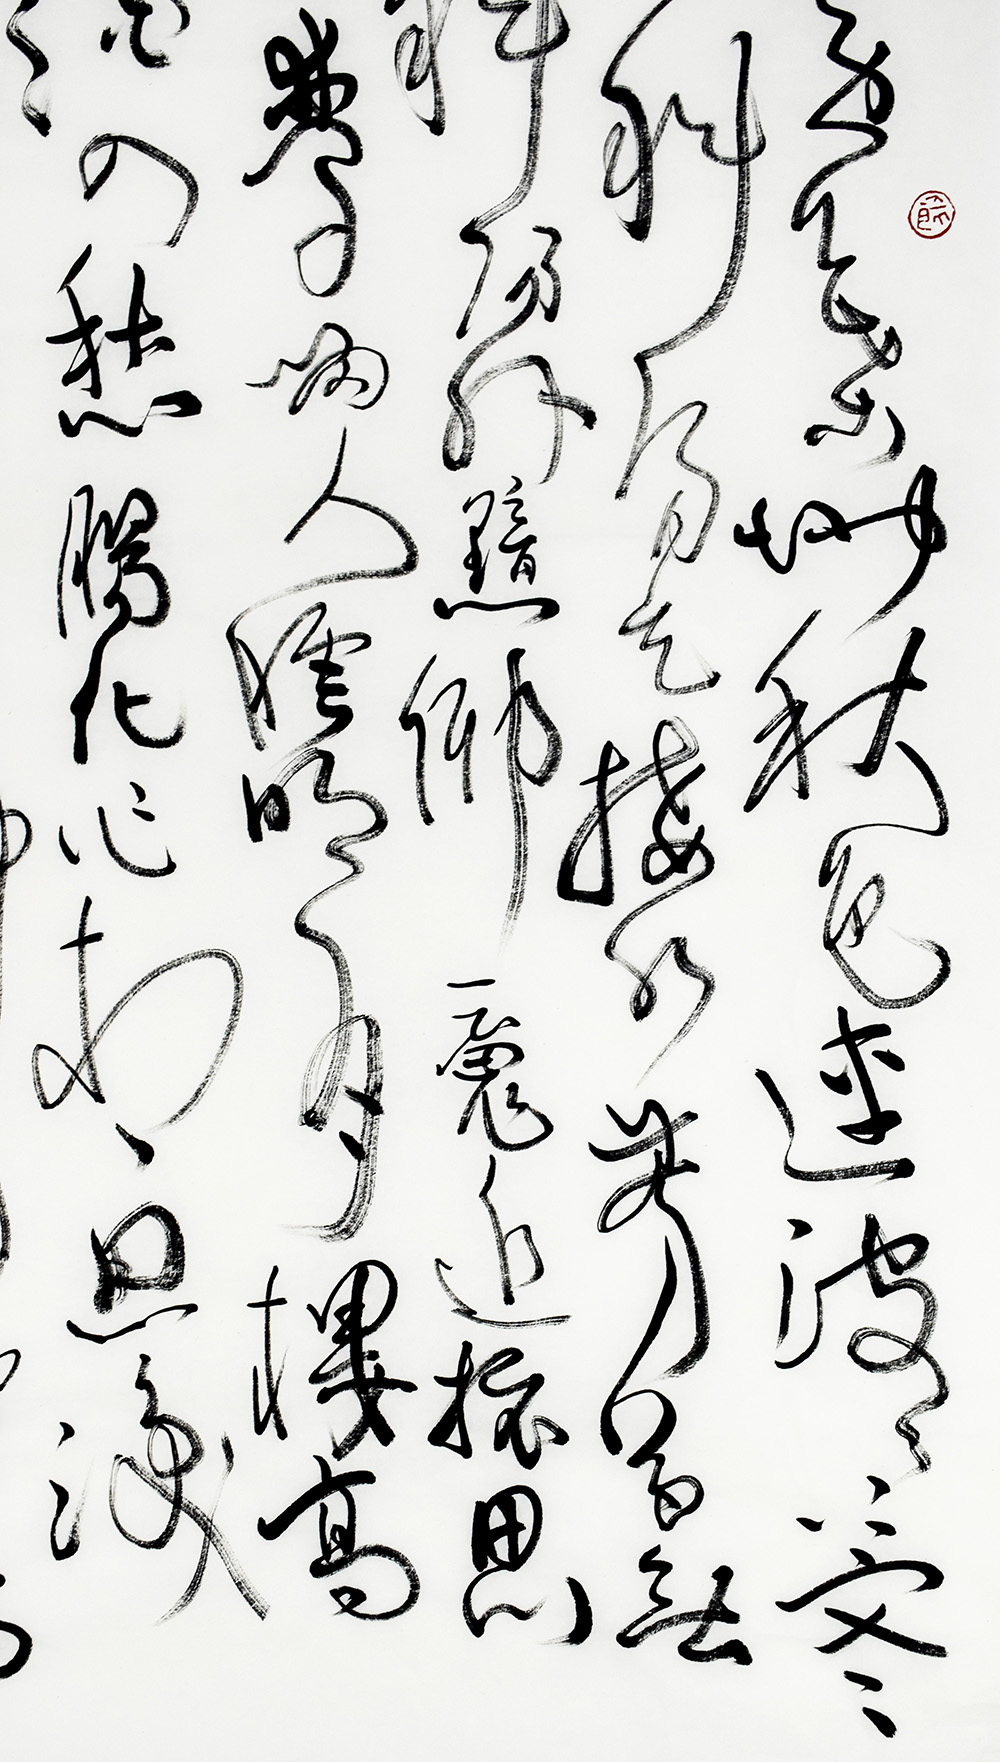 天葉地秋色連波〻寒
斜陽天接水芳草無
斜陽外黯鄉魂追旅思
夢留人睡明月樓高
入愁腸化作相思淚